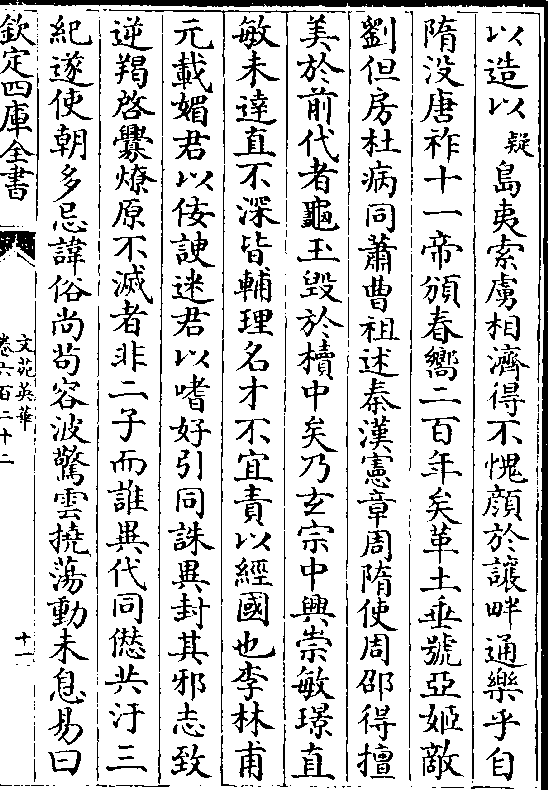 以造以疑島夷索虜相濟得不愧顔於讓畔通樂乎自
隋没唐祚十一帝頒春嚮二百年矣革土垂號亞姬敵
劉但房杜病同蕭曹祖述秦漢憲章周隋使周邵得擅
美於前代者龜玉毁於櫝中矣乃玄宗中興崇敏璟直
敏未達直不深皆輔理名才不宜責以經國也李林甫
元載媚君以佞諛迷君以嗜好引同誅異封其邪志致
逆羯啓釁燎原不滅者非二子而誰異代同僁共汙三
紀遂使朝多忌諱俗尚苟容波驚雲撓蕩動未息易曰
欽定四庫全書
文苑英華
卷六百二十二
十一